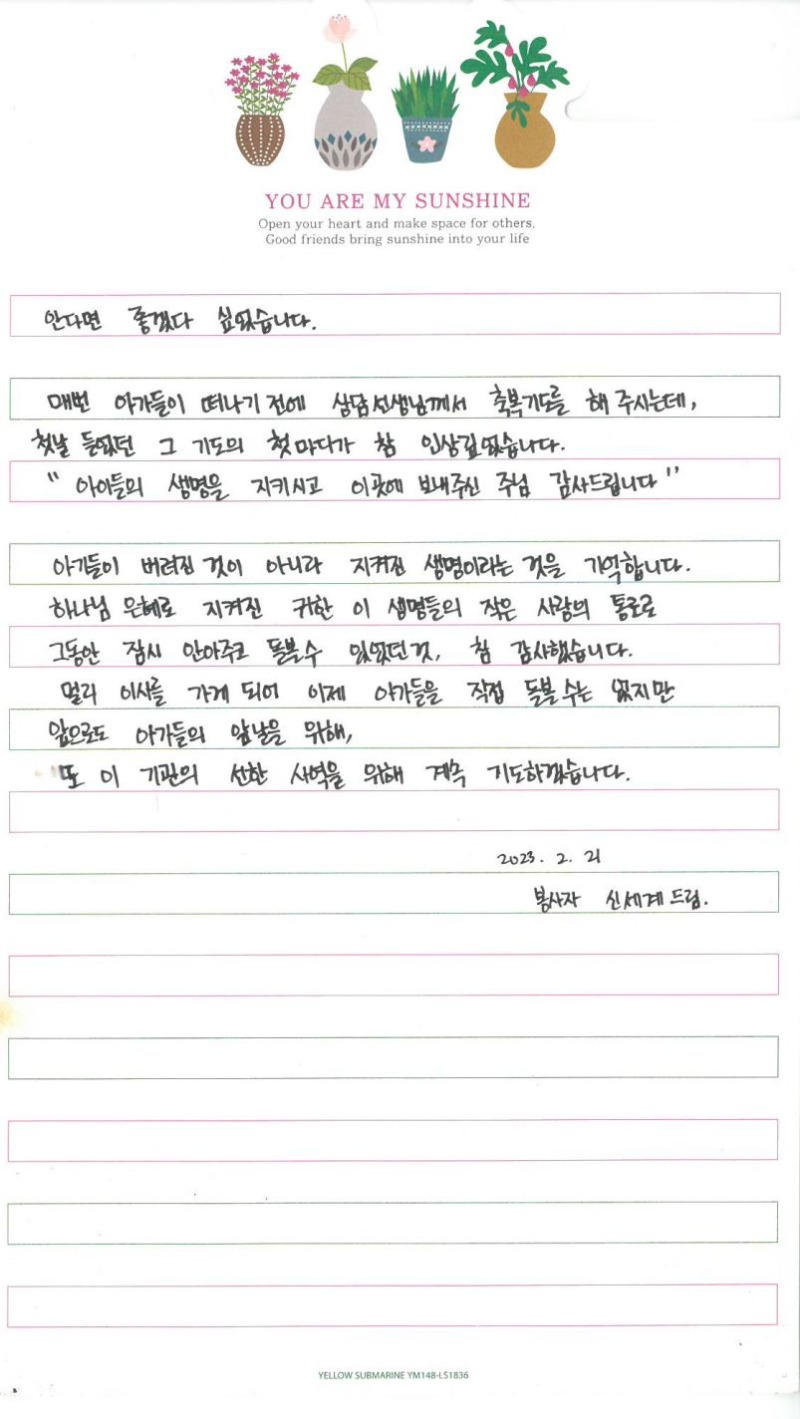 YOU ARE MY SUNSHINE
Open your heart and make space for others.
Good friends bring sunshine into your life
안다면 좋겠다 싶었습니다.
매번 아가들이 떠나기 전에 상담선생님께서 축복기도를 해 주시는데,
첫날 들었던 그 기도의 첫 마디가 참 인상깊었습니다.
" 아이들의 생명을 지키시고 이곳에 보내주신 주님 감사드립니다 "
아가들이 버려진 것이 아니라 지켜진 생명이라는 것을 기억합니다.
하나님 은혜로 지켜진 귀한 이 생명들의 작은 사랑의 통로로
그동안 잠시 안아주고 돌볼 수 있었던 것, 참 감사했습니다.
멀리 이사를 가게 되어 이제 아가들을 직접 돌볼 수는 없지만
앞으로도 아가들의 앞날을 위해,
또 이 기관의 선한 사역을 위해 계속 기도하겠습니다.
2023. 2. 21
봉사자 신세계 드림.
YELLOW SUBMARINE YM148-LS1836